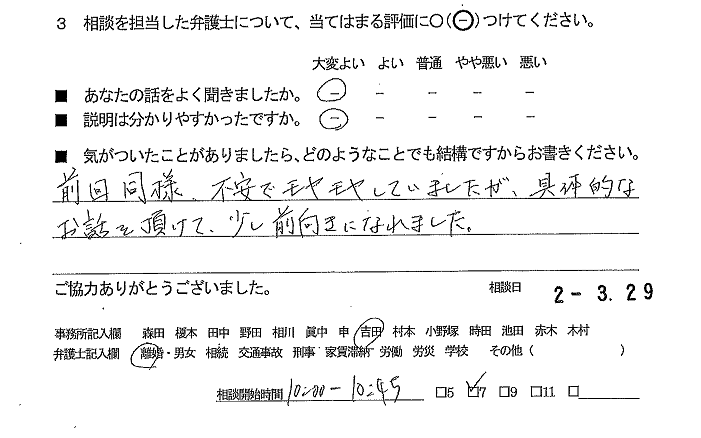 3 相談を担当した弁護士について、当てはまる評価に○(⊖)つけてください。
大変よい よい 普通 やや悪い 悪い
■ あなたの話をよく聞きましたか。 － － － － －
■ 説明は分かりやすかったですか。 － － － － －
■ 気がついたことがありましたら、どのようなことでも結構ですからお書きください。
前回同様、不安でモヤモヤしていましたが、具体的な
お話を頂けて、少し前向きになれました。
ご協力ありがとうございました。 相談日 2－3.29
事務所記入欄 森田 榎本 田中 野田 相川 眞中 申 吉田 村本 小野塚 時田 池田 赤木 木村
弁護士記入欄 離婚・男女 相続 交通事故 刑事 家賃滞納 労働 労災 学校 その他( )
相談開始時間 10:00－10:45 □5 ☑7 □9 □11 □